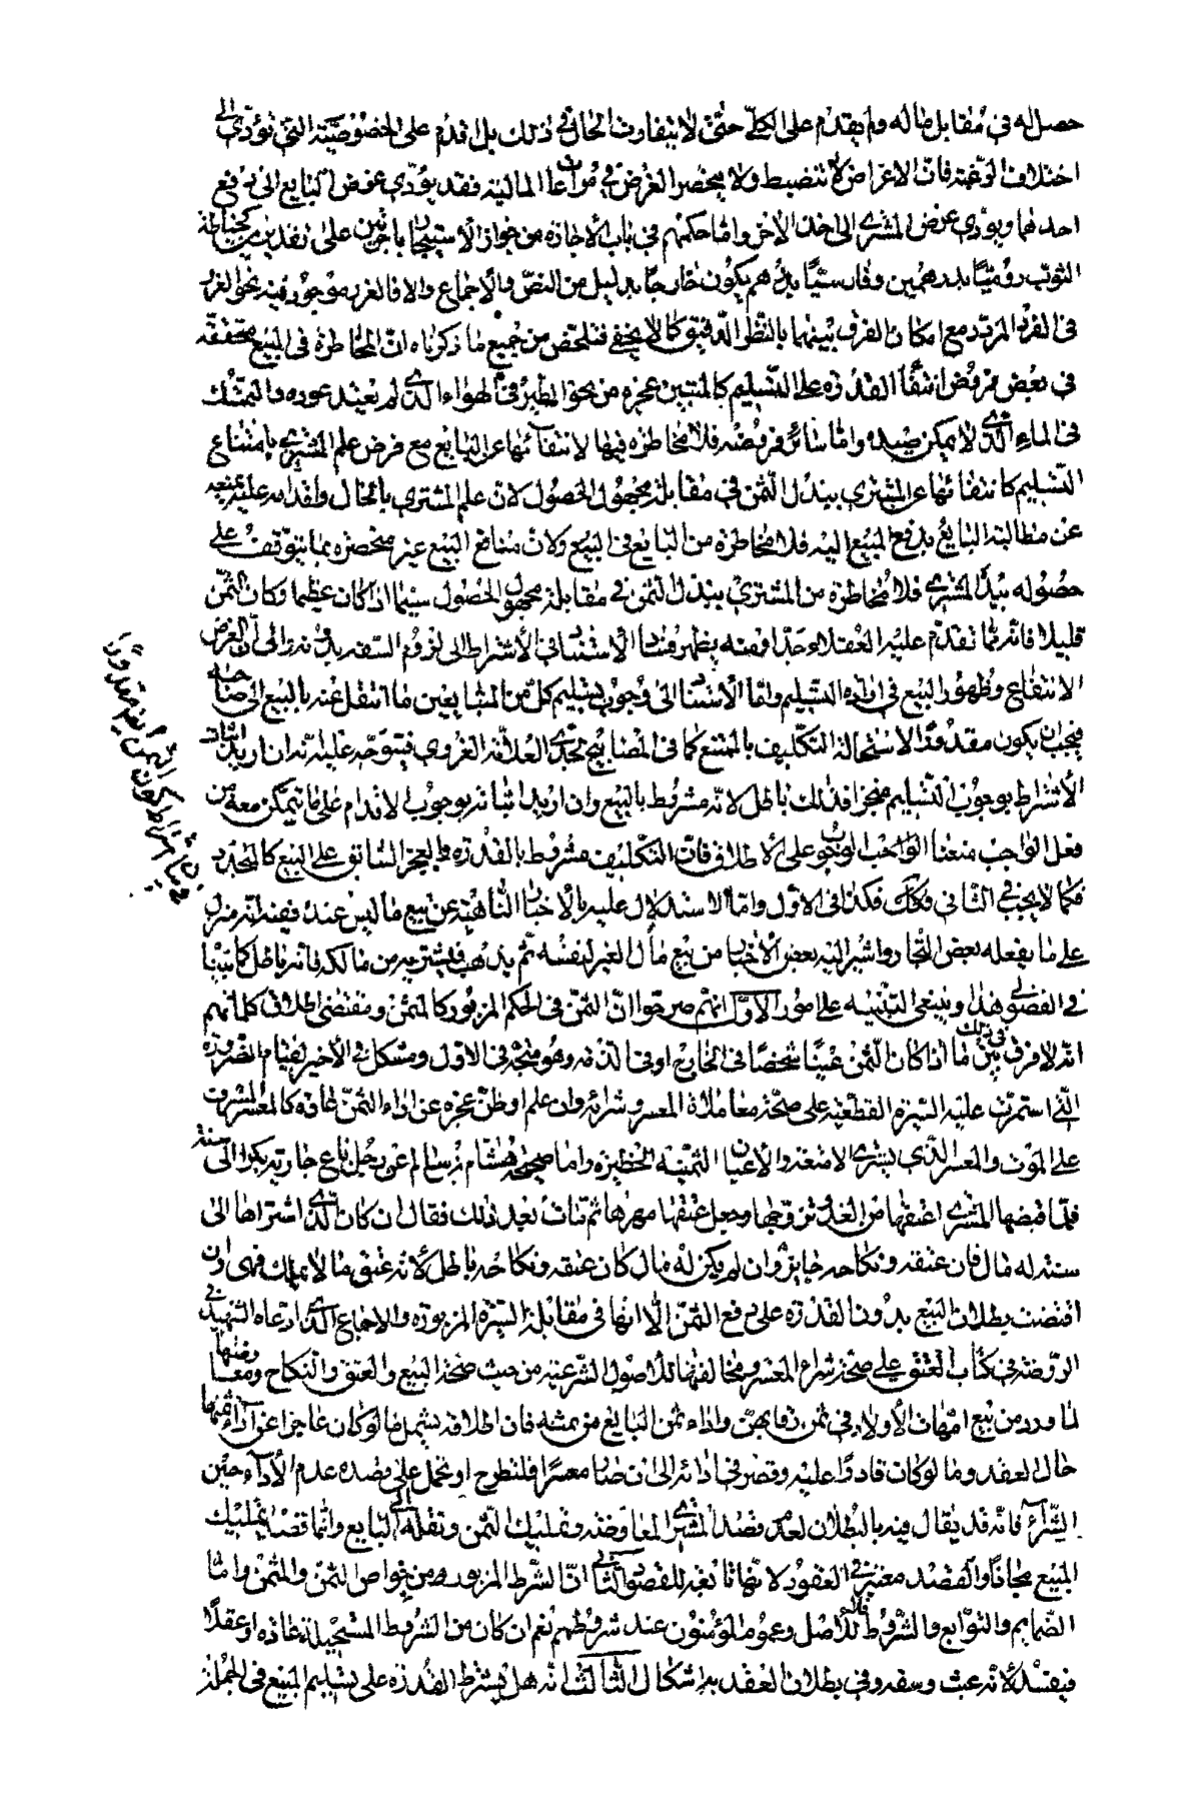 حصل له في مقابل ماله ولم يقدم على الكلي حتى لا يتفاوت الحال في ذلك بل اقدم على الخصوصية التي تؤدي الى
اختلاف الرغبة فان الاغراض لا تنضبط ولا ينحصر الغرض في مراعاة المالية فقد يؤدي عوض البايع الى دفع
احدهما ويؤدي عوض المشتري الى اخذ الاخر واما حكمهم في باب الاجازة من جواز الاستيجار باجرتين على تقديرين كخياطة
الثوب روميا بدرهمين وفارسيا بدرهم يكون خارجا بدليل من النص والاجماع والا فالغرر موجود فيه نحو الغرر
في الفرد المردد مع امكان الفرق بينهما بالنظر الدقيق كما لا يخفى فتلخص من جميع ما ذكرناه ان المخاطرة في المبيع متحققة
في بعض فروض انتفاء القدرة على التسليم كالمتبين عجزه من نحو الطير في الهواء الذي لم يعتد عوده والسمك
في الماء الذي لا يمكن صيده واما سائر فروضه فلا مخاطرة فيها لانتفائها عن البايع مع فرض علم المشتري بامتناع
التسليم كانتفائها عن المشتري ببذل الثمن في مقابلة مجهول الحصول لان علم المشتري بالحال واقدامه عليه يمنعه
عن مطالبة البايع بدفع المبيع اليه فلا مخاطرة من البايع في البيع وكان منافع المبيع غير منحصرة بما يتوقف على
حصوله بيد المشتري فلا مخاطرة من المشتري ببذل الثمن في مقابلة مجهول الحصول سيما اذا كان عظيما وكان الثمن
قليلا فانه مما تقدم عليه العقلاء جدا ومنه يظهر فساد الاستناد في الاشتراط الى لزوم السفه بدونه والى ان الغرض
الانتفاع وظهور البيع في ارادة التسليم واما الاستناد الى وجوب تسليم كل من المتبايعين ما انتقل عنه بالبيع الى صاحبه
فيجب ان يكون مقدورا لاستحالة التكليف بالممتنع كما في المصابيح لجدي العلامة الغروي فيتوجه عليه انه ان اريد اثبات
الاشتراط بوجوب التسليم منجزا فذلك باطل لانه مشروط بالبيع وان اريد اثباته بوجوب الاقدام على ما يتمكن معه من
فعل الواجب منعنا الواجب الوجوب على الاطلاق فان التكليف مشروط بالقدرة والعجز السابق على البيع كالمتجدد
فكما لا يجب في الثاني فكذا في الاول واما الاستدلال عليه بالاخبار الناهية عن بيع ما ليس عنده ففيه انه منزل
على ما يفعله بعض التجار واشير اليه بعض الاخبار من بيع مال الغير لنفسه ثم يذهب فيشتريه من مالكه فانه باطل كما بينا
في الفضولي هذا وينبغي التنبيه على امور الاول انهم صرحوا ان الثمن في الحكم المزبور كالمثمن ومقتضى اطلاق كلماتهم
انه لا فرق في ذلك بين ما اذا كان الثمن عينا شخصا في الخارج او في الذمة وهو متجه في الاول ومشكل في الاخير لقيام الضرورة
التي استمرت عليه السيرة القطعية على صحة معاملة المعسر وشرائه وان علم او ظن عجزه عن اداء الثمن عادة كالمعسر المشرف
على الموت والمعسر الذي يشتري الامتعة والاعيان الثمينة الخطيرة واما صحيح هشام بن سالم عن رجل باع جارية بكرا الى سنة
فلما قبضها المشتري اعتقها من الغد وتزوجها وجعل عتقها مهرها ثم مات بعد ذلك فقال ان كان الذي اشتراها الى
سنة له مال فان عتقه ونكاحه جايز وان لم يكن له مال كان عتقه ونكاحه باطل لانه عتق ما لا يملك فهي وان
اقتضت بطلان البيع بدون القدرة على دفع الثمن الا انها في مقابلة السيرة المزبورة والاجماع الذي ادعاه الشهيد في
الروضة في كتاب العتق على صحة شراء المعسر ومخالفتها للاصول الشرعية من حيث صحة البيع والعتق والنكاح ومعارضتها
لما ورد من بيع امهات الاولاد في ثمن رقابهن واداء ثمن البايع من ثمنه فان اطلاقه يشمل ما لو كان عاجزا عن اداء ثمنها
حال العقد وما لو كان قادرا عليه وقصر في ادائه الى ان صار معسرا فلتطرح او تحمل على قصده عدم الاداء حين
الشراء فانه قد يقال فيه بالبطلان لعدم قصد المشتري المعاوضة وتمليك الثمن ونقله الى البايع وانما قصد تمليك
المبيع مجانا والقصد معتبر في العقود لانها تابعة للقصود الثاني ان الشرط المزبور من خواص الثمن والمثمن واما
الضمايم والتوابع والشروط فلا للاصل وعموم المؤمنون عند شروطهم نعم ان كان من الشروط المستحيلة عادة او عقلا
فيفسد لانه عبث وسفه وفي بطلان العقد به اشكال الثالث انه هل يشترط القدرة على تسليم المبيع في الجملة